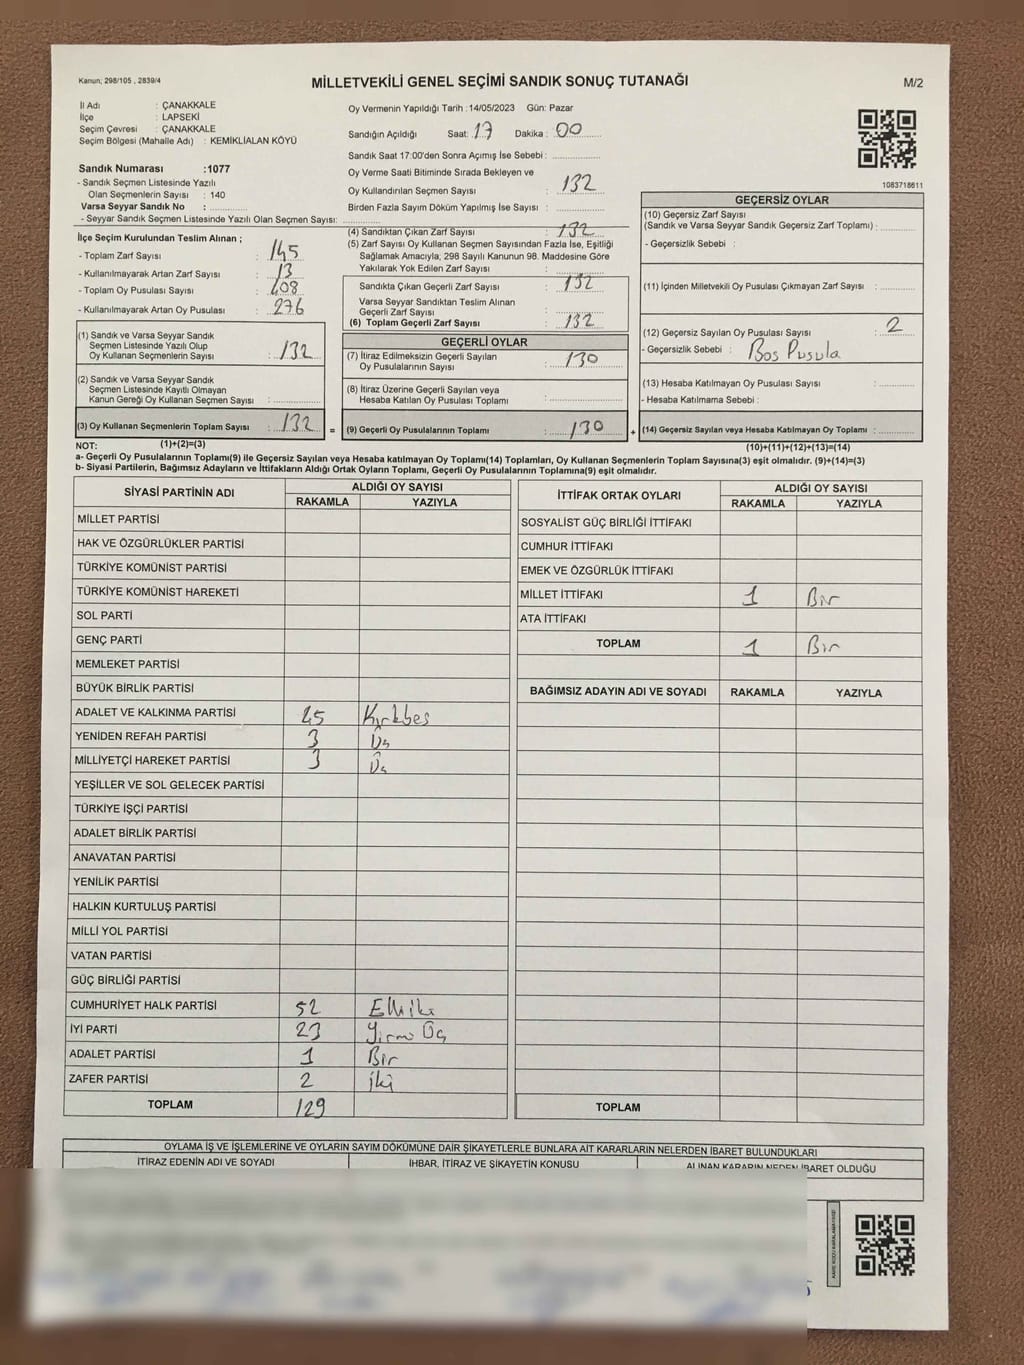 Kanun; 298/105 , 2839/4
MİLLETVEKİLİ GENEL SEÇİMİ SANDIK SONUÇ TUTANAĞI
M/2
İl Adı : ÇANAKKALE
İlçe : LAPSEKİ
Seçim Çevresi : ÇANAKKALE
Seçim Bölgesi (Mahalle Adı) : KEMİKLİALAN KÖYÜ
Sandık Numarası :1077
- Sandık Seçmen Listesinde Yazılı
Olan Seçmenlerin Sayısı : 140
Varsa Seyyar Sandık No :
- Seyyar Sandık Seçmen Listesinde Yazılı Olan Seçmen Sayısı:
İlçe Seçim Kurulundan Teslim Alınan ;
- Toplam Zarf Sayısı : 145
- Kullanılmayarak Artan Zarf Sayısı : 13
- Toplam Oy Pusulası Sayısı : 408
- Kullanılmayarak Artan Oy Pusulası : 276
(1) Sandık ve Varsa Seyyar Sandık
Seçmen Listesinde Yazılı Olup
Oy Kullanan Seçmenlerin Sayısı : 132
(2) Sandık ve Varsa Seyyar Sandık
Seçmen Listesinde Kayıtlı Olmayan
Kanun Gereği Oy Kullanan Seçmen Sayısı :
(3) Oy Kullanan Seçmenlerin Toplam Sayısı : 132
Oy Vermenin Yapıldığı Tarih :14/05/2023 Gün: Pazar
Sandığın Açıldığı Saat: 17 Dakika : 00
Sandık Saat 17:00'den Sonra Açımış İse Sebebi :
Oy Verme Saati Bitiminde Sırada Bekleyen ve
Oy Kullandırılan Seçmen Sayısı : 132
Birden Fazla Sayım Döküm Yapılmış İse Sayısı :
(4) Sandıktan Çıkan Zarf Sayısı : 132
(5) Zarf Sayısı Oy Kullanan Seçmen Sayısından Fazla İse, Eşitliği
Sağlamak Amacıyla, 298 Sayılı Kanunun 98. Maddesine Göre
Yakılarak Yok Edilen Zarf Sayısı :
Sandıkta Çıkan Geçerli Zarf Sayısı : 132
Varsa Seyyar Sandıktan Teslim Alınan
Geçerli Zarf Sayısı :
(6) Toplam Geçerli Zarf Sayısı : 132
GEÇERLİ OYLAR
(7) İtiraz Edilmeksizin Geçerli Sayılan
Oy Pusulalarının Sayısı : 130
(8) İtiraz Üzerine Geçerli Sayılan veya
Hesaba Katılan Oy Pusulası Toplamı :
= (9) Geçerli Oy Pusulalarının Toplamı : 130
1083718611
GEÇERSİZ OYLAR
(10) Geçersiz Zarf Sayısı
(Sandık ve Varsa Seyyar Sandık Geçersiz Zarf Toplamı) :
- Geçersizlik Sebebi :
(11) İçinden Milletvekili Oy Pusulası Çıkmayan Zarf Sayısı :
(12) Geçersiz Sayılan Oy Pusulası Sayısı : 2
- Geçersizlik Sebebi : Boş Pusula
(13) Hesaba Katılmayan Oy Pusulası Sayısı :
- Hesaba Katılmama Sebebi :
+ (14) Geçersiz Sayılan veya Hesaba Katılmayan Oy Toplamı :
NOT: (1)+(2)=(3) (10)+(11)+(12)+(13)=(14)
a- Geçerli Oy Pusulalarının Toplamı(9) ile Geçersiz Sayılan veya Hesaba katılmayan Oy Toplamı(14) Toplamları, Oy Kullanan Seçmenlerin Toplam Sayısına(3) eşit olmalıdır. (9)+(14)=(3)
b- Siyasi Partilerin, Bağımsız Adayların ve İttifakların Aldığı Ortak Oyların Toplamı, Geçerli Oy Pusulalarının Toplamına(9) eşit olmalıdır.
SİYASİ PARTİNİN ADI ALDIĞI OY SAYISI
RAKAMLA YAZIYLA
MİLLET PARTİSİ
HAK VE ÖZGÜRLÜKLER PARTİSİ
TÜRKİYE KOMÜNİST PARTİSİ
TÜRKİYE KOMÜNİST HAREKETİ
SOL PARTİ
GENÇ PARTİ
MEMLEKET PARTİSİ
BÜYÜK BİRLİK PARTİSİ
ADALET VE KALKINMA PARTİSİ 45 Kırkbeş
YENİDEN REFAH PARTİSİ 3 Üç
MİLLİYETÇİ HAREKET PARTİSİ 3 Üç
YEŞİLLER VE SOL GELECEK PARTİSİ
TÜRKİYE İŞÇİ PARTİSİ
ADALET BİRLİK PARTİSİ
ANAVATAN PARTİSİ
YENİLİK PARTİSİ
HALKIN KURTULUŞ PARTİSİ
MİLLİ YOL PARTİSİ
VATAN PARTİSİ
GÜÇ BİRLİĞİ PARTİSİ
CUMHURİYET HALK PARTİSİ 52 Elliiki
İYİ PARTİ 23 Yirmi Üç
ADALET PARTİSİ 1 Bir
ZAFER PARTİSİ 2 İki
TOPLAM 129
İTTİFAK ORTAK OYLARI ALDIĞI OY SAYISI
RAKAMLA YAZIYLA
SOSYALİST GÜÇ BİRLİĞİ İTTİFAKI
CUMHUR İTTİFAKI
EMEK VE ÖZGÜRLÜK İTTİFAKI
MİLLET İTTİFAKI 1 Bir
ATA İTTİFAKI
TOPLAM 1 Bir
BAĞIMSIZ ADAYIN ADI VE SOYADI RAKAMLA YAZIYLA
TOPLAM
OYLAMA İŞ VE İŞLEMLERİNE VE OYLARIN SAYIM DÖKÜMÜNE DAİR ŞİKAYETLERLE BUNLARA AİT KARARLARIN NELERDEN İBARET BULUNDUKLARI
İTİRAZ EDENİN ADI VE SOYADI İHBAR, İTİRAZ VE ŞİKAYETİN KONUSU ALINAN KARARIN NEDEN İBARET OLDUĞU